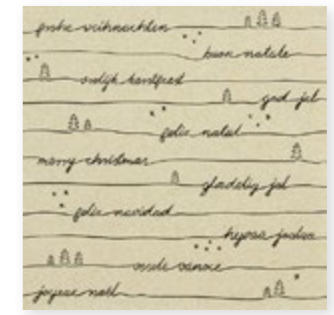 frohe weihnachten
buon natale
vrolijk kerstfeest
god jul
feliz natal
merry christmas
glædelig jul
feliz navidad
hyvää joulua
vesele vánoce
joyeux noël